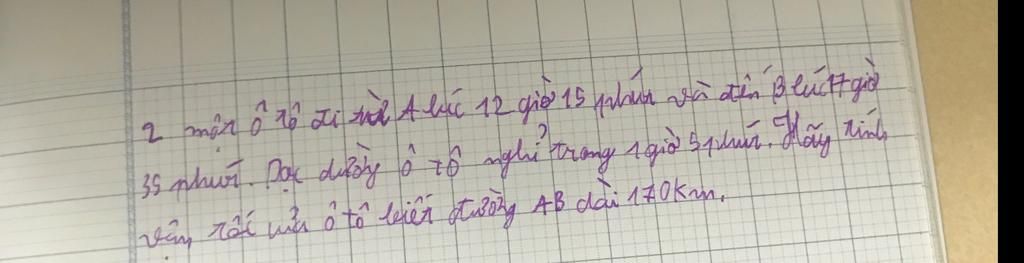 2 một ô tô đi từ A lúc 12 giờ 15 phút và đến B lúc 17 giờ
35 phút. Dọc đường ô tô nghỉ trong 1 giờ 5 phút. Hãy tính
vận tốc của ô tô biết đường AB dài 170km.